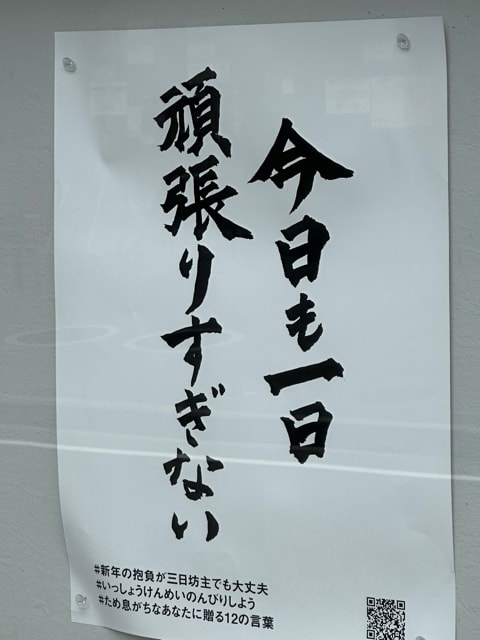 今日も一日
頑張りすぎない
#新年の抱負が三日坊主でも大丈夫
#いっしょうけんめいのんびりしよう
#ため息がちなあなたに贈る12の言葉